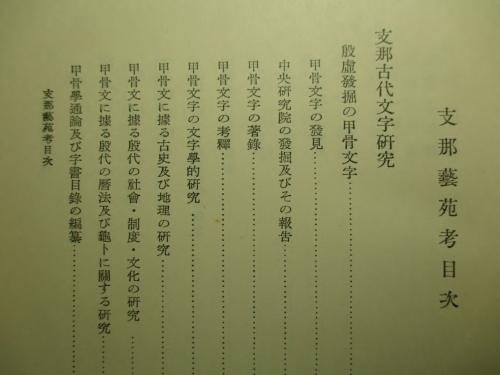 支那藝苑考目次
支那古代文字硏究
殷虛發掘の甲骨文字
甲骨文字の發見
中央硏究院の發掘及びその報告
甲骨文字の著錄
甲骨文字の考釋
甲骨文字の文字學的硏究
甲骨文に據る古史及び地理の硏究
甲骨文に據る殷代の社會・制度・文化の硏究
甲骨文に據る殷代の曆法及び龜卜に關する硏究
甲骨學通論及び字書目錄の編纂
支那藝苑考目次